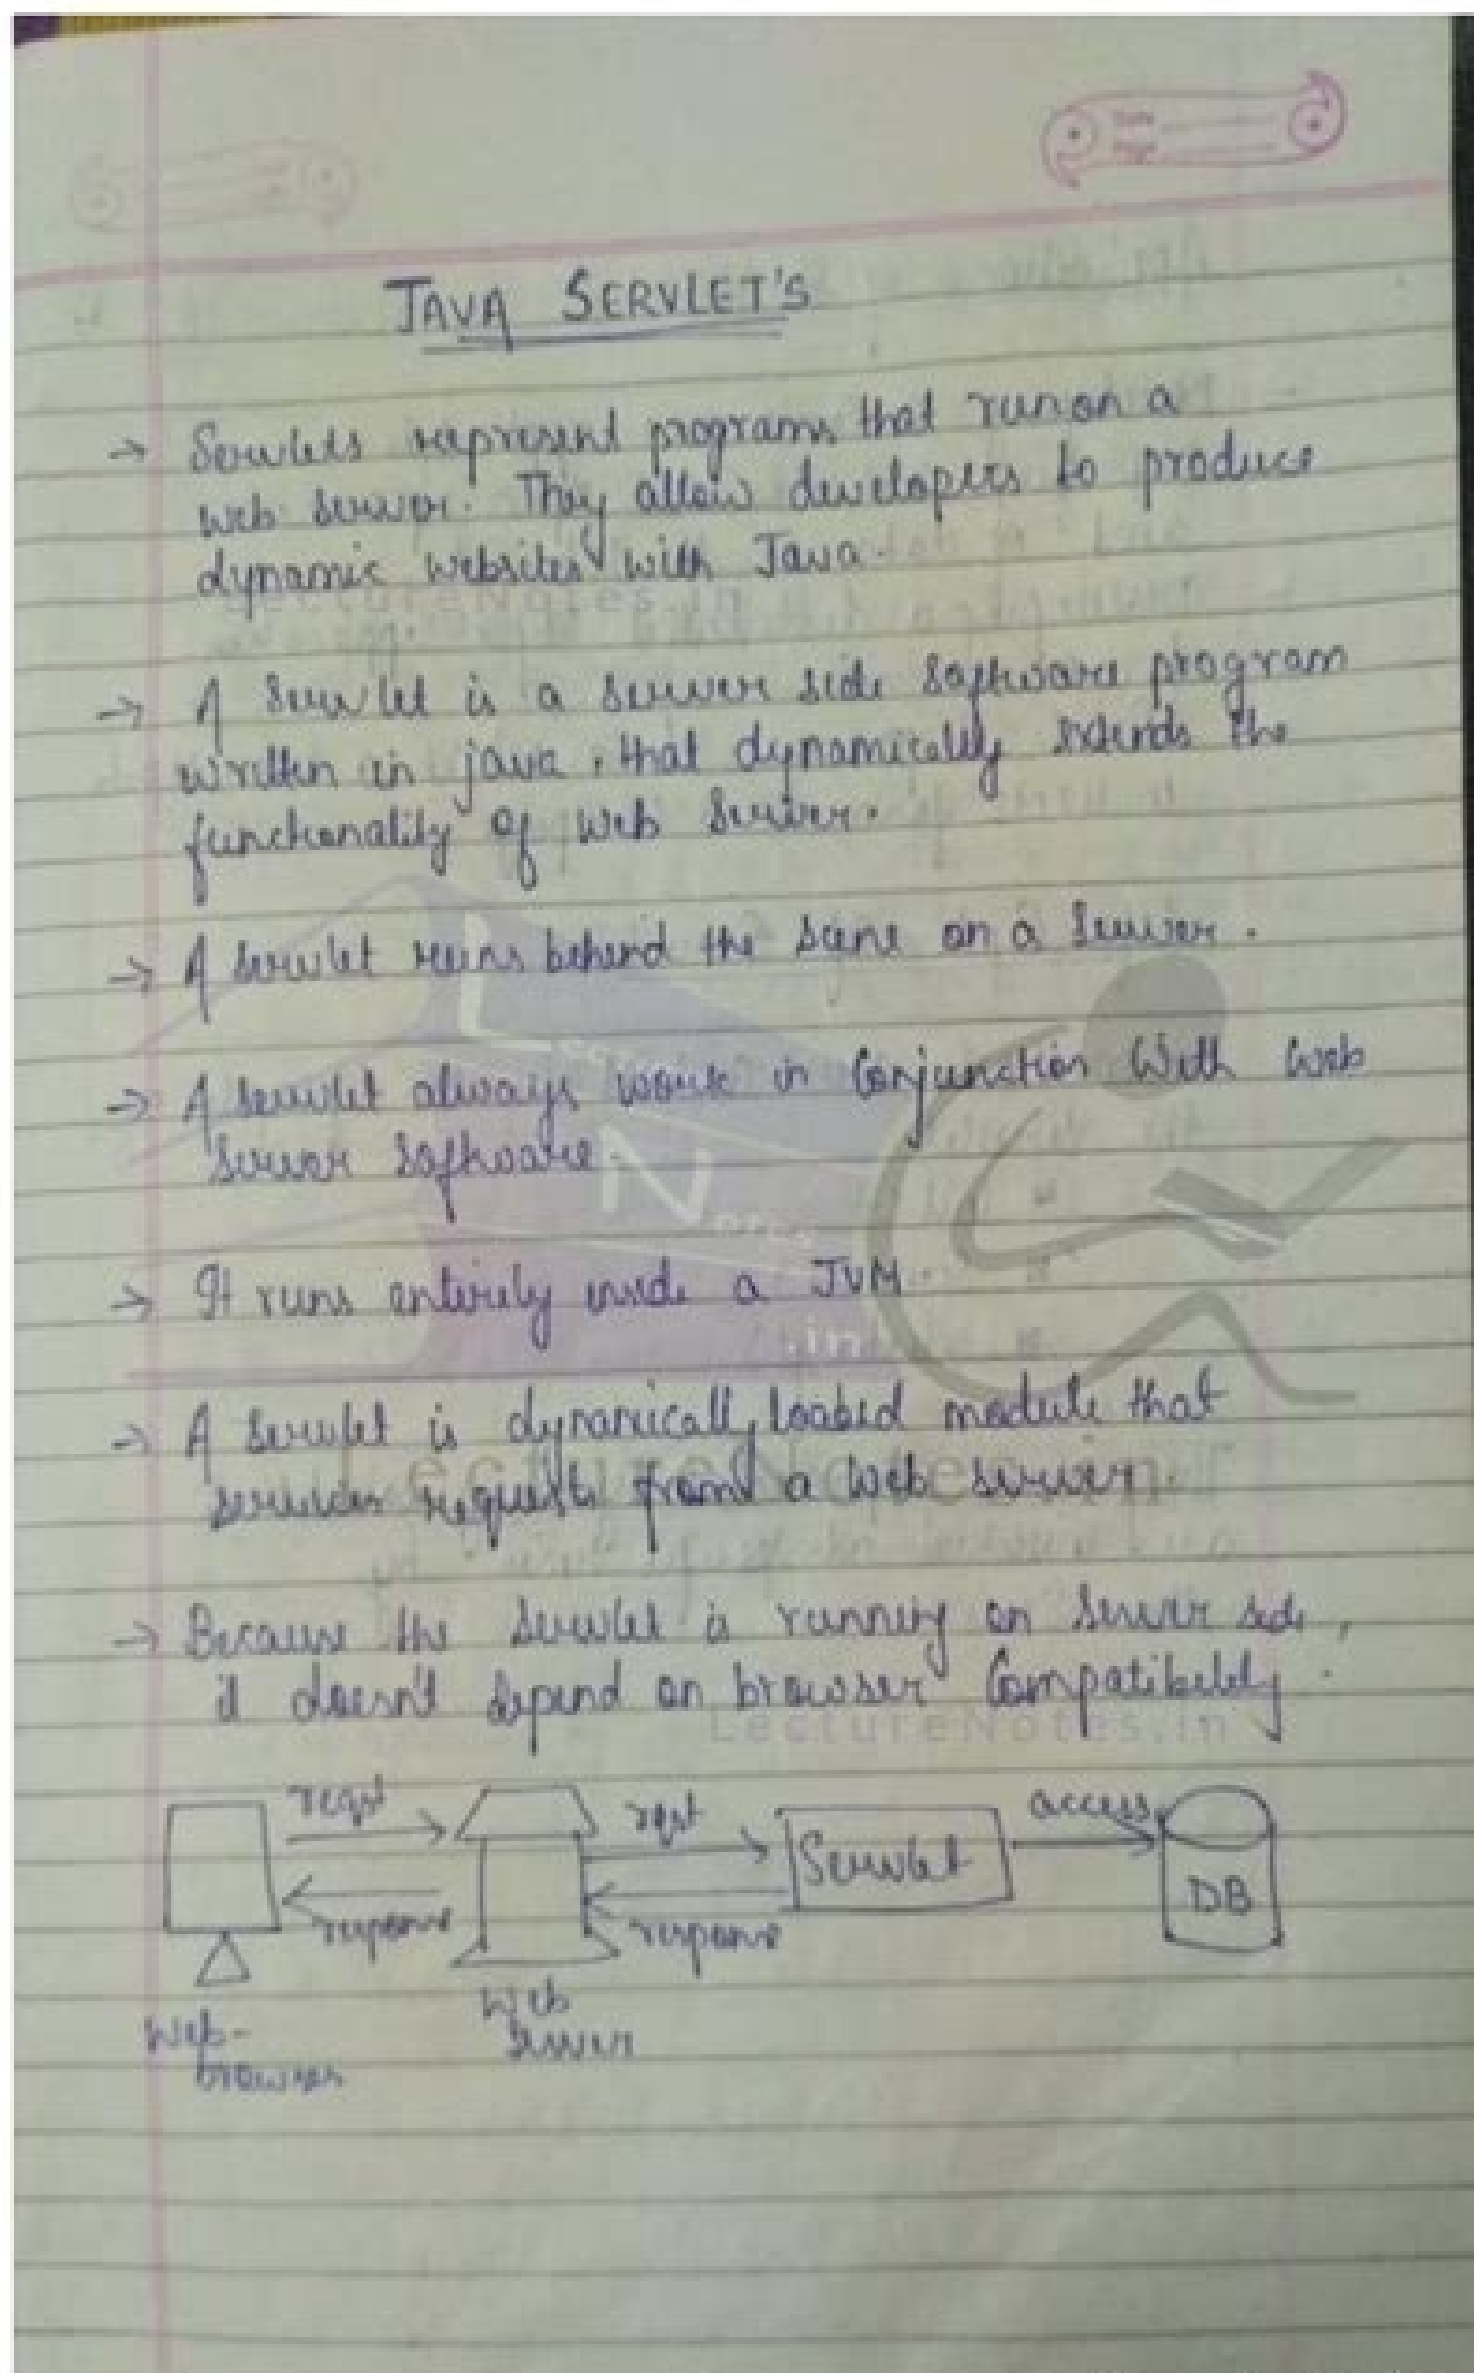 Date
Page
JAVA SERVLET'S
→ Servlets represent programs that run on a
web server. They allow developers to produce
dynamic websites with Java.
LectureNotes.in
→ A Servlet is a server side software program
written in java, that dynamically extends the
functionality of web Server.
→ A servlet runs behind the scene on a Server.
→ A servlet always work in Conjunction With Web
Server Software.
→ It runs entirely inside a JVM.
.in
→ A Servlet is dynamically loaded module that
services requests from a Web server.
LectureNotes.in
→ Because the Servlet is running on Server side,
it doesn't depend on browser Compatibility.
LectureNotes.in
reqst
rqst
access
Servlet
DB
response
response
Web
Server
Web-
browser